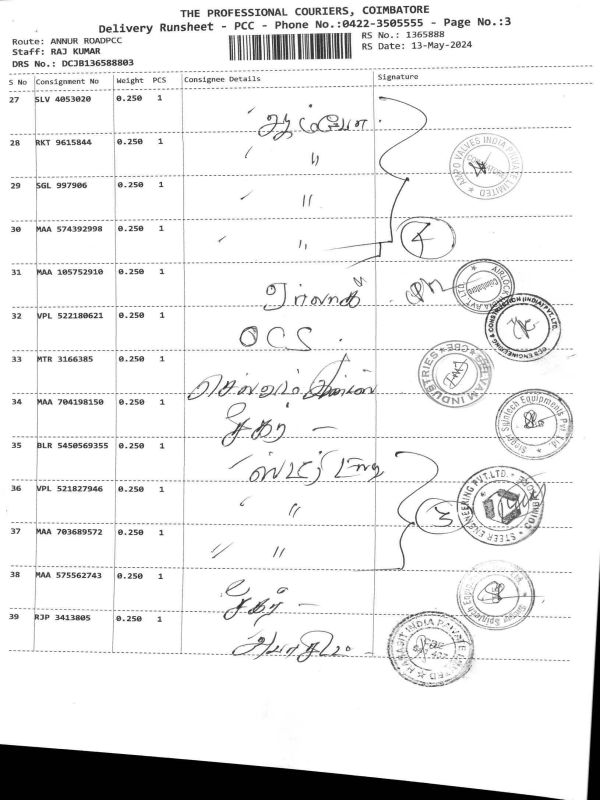 THE PROFESSIONAL COURIERS, COIMBATORE
Delivery Runsheet - PCC - Phone No.:0422-3505555 - Page No.:3
Route: ANNUR ROADPCC
RS No.: 1365888
Staff: RAJ KUMAR
RS Date: 13-May-2024
DRS No.: DCJB136588803
S No Consignment No Weight PCS Consignee Details Signature
27 SLV 4053020 0.250 1
28 RKT 9615844 0.250 1 "
AMPO VALVES INDIA PRIVATE LIMITED
29 SGL 997906 0.250 1 "
30 MAA 574392998 0.250 1 "
4
31 MAA 105752910 0.250 1
Coimbatore
32 VPL 522180621 0.250 1 OCS
OCS ENGINEERING & CONSTRUCTION (INDIA) PVT. LTD.
33 MTR 3166385 0.250 1
INDUSTRIES CBE
34 MAA 704198150 0.250 1 சேகர் -
Spintech Equipments Pvt Ltd
35 BLR 5450569355 0.250 1
36 VPL 521827946 0.250 1 "
3
STEER ENGINEERING PVT.LTD.
37 MAA 703689572 0.250 1 "
38 MAA 575562743 0.250 1 சேகர் -
39 RJP 3413805 0.250 1
INDIA PRIVATE LIMITED